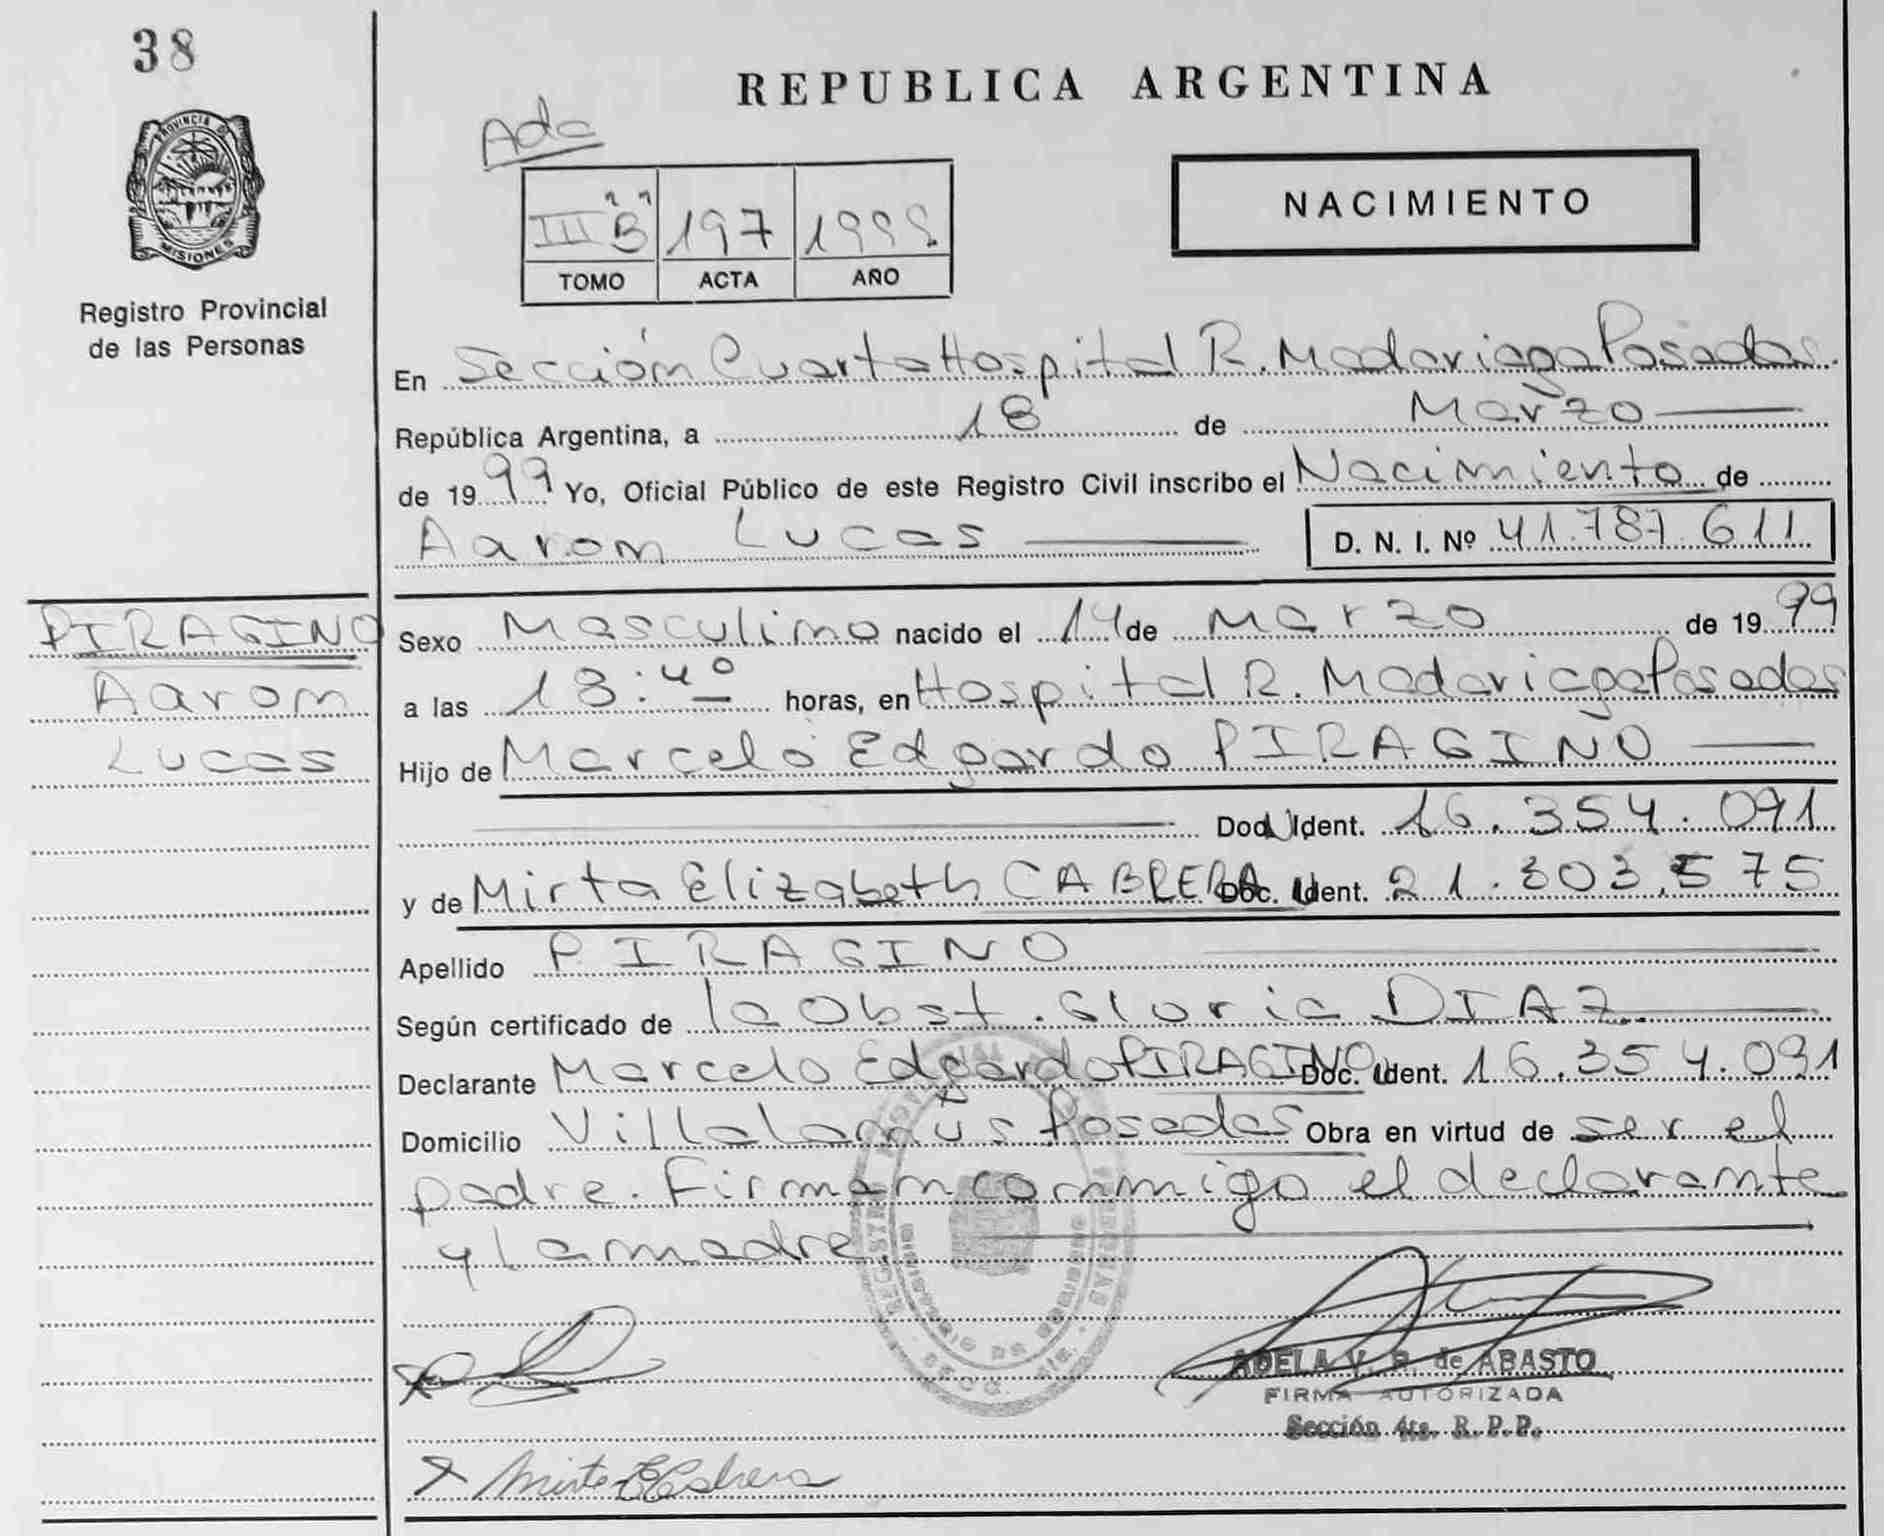 38
PROVINCIA DE
MISIONES
Registro Provincial
de las Personas
REPUBLICA ARGENTINA
Ada
NACIMIENTO
III "B" 197 1999
TOMO ACTA AÑO
En Sección Cuarta Hospital R. Madariaga Posadas.
República Argentina, a 18 de Marzo
de 1999 Yo, Oficial Público de este Registro Civil inscribo el Nacimiento de
Aarom Lucas D. N. I. Nº 41.787.611
PIRAGINO
Aarom
Lucas
Sexo Masculino nacido el 14 de Marzo de 1999
a las 13:40 horas, en Hospital R. Madariaga Posadas
Hijo de Marcelo Edgardo PIRAGINO
Doc. Ident. 16.354.091
y de Mirta Elizabeth CABRERA Doc. Ident. 21.303.575
Apellido PIRAGINO
Según certificado de la Obst. Gloria DIAZ
Declarante Marcelo Edgardo PIRAGINO Doc. Ident. 16.354.091
Domicilio Villa Lanús Posadas Obra en virtud de ser el
padre. Firman conmigo el declarante
y la madre.
ADELA V. R. de ABASTO
FIRMA AUTORIZADA
Sección 4ta. R. P. P.
Mirta E Cabrera